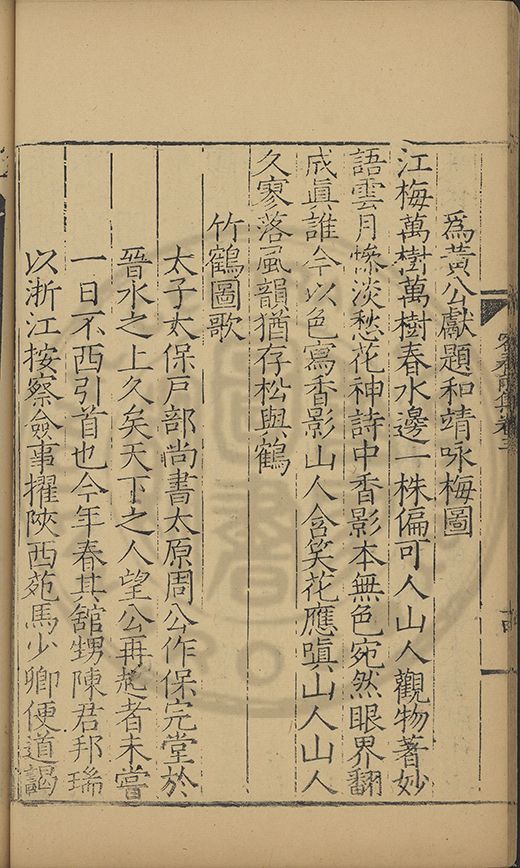 為黃公獻題和靖咏梅圖
江梅萬樹萬樹春水邊一株偏可人山人觀物著妙
語雲月慘淡愁花神詩中香影本無色宛然眼界翻
成眞誰今以色寫香影山人含笑花應嗔山人山人
久寥落風韻猶存松與鶴
竹鶴圖歌
太子太保戶部尚書太原周公作保完堂於
晉水之上久矣天下之人望公再起者未嘗
一日不西引首也今年春其舘甥陳君邦瑞
以浙江按察僉事擢陝西苑馬少卿便道謁